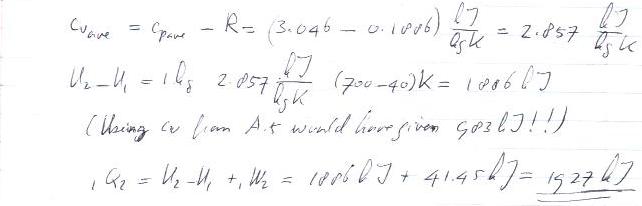 Cv ave = Cp ave - R = (3.046 - 0.1886) kJ/kg K = 2.857 kJ/kg K
U2 - U1 = 1 kg 2.857 kJ/kg K (700-40)K = 1886 kJ
(Using cv from A.5 would have given 983 kJ!!)
1Q2 = U2 - U1 + 1W2 = 1886 kJ + 41.45 kJ = 1927 kJ